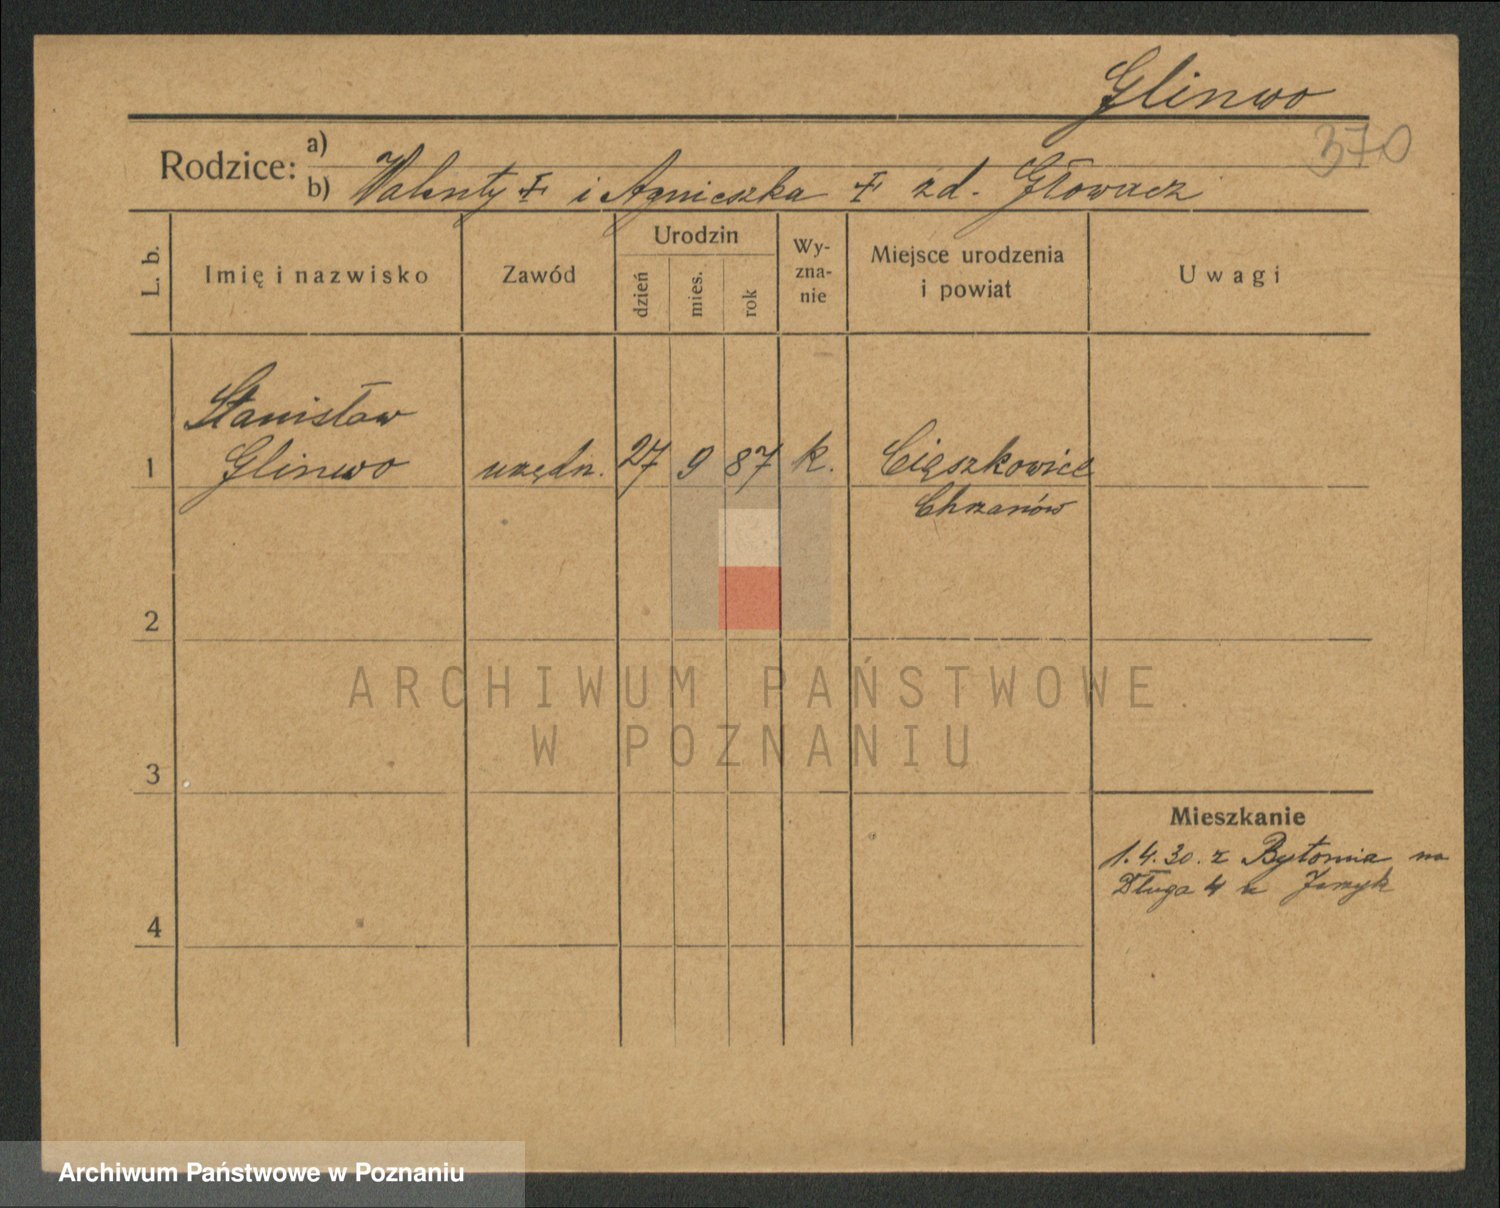 Glinwo
370
Rodzice: a)
b) Walenty ✝ i Agnieszka ✝ zd. Głowacz
L. b. Imię i nazwisko Zawód Urodzin dzień mies. rok Wy-zna-nie Miejsce urodzenia i powiat Uwagi
Stanisław
1 Glinwo urzędn. 27 9 87 k. Ciąszkowice
Chrzanów
2
ARCHIWUM PAŃSTWOWE
W POZNANIU
3
Mieszkanie
1.4.30. z Bytomia na
Długa 4 u
4
Archiwum Państwowe w Poznaniu